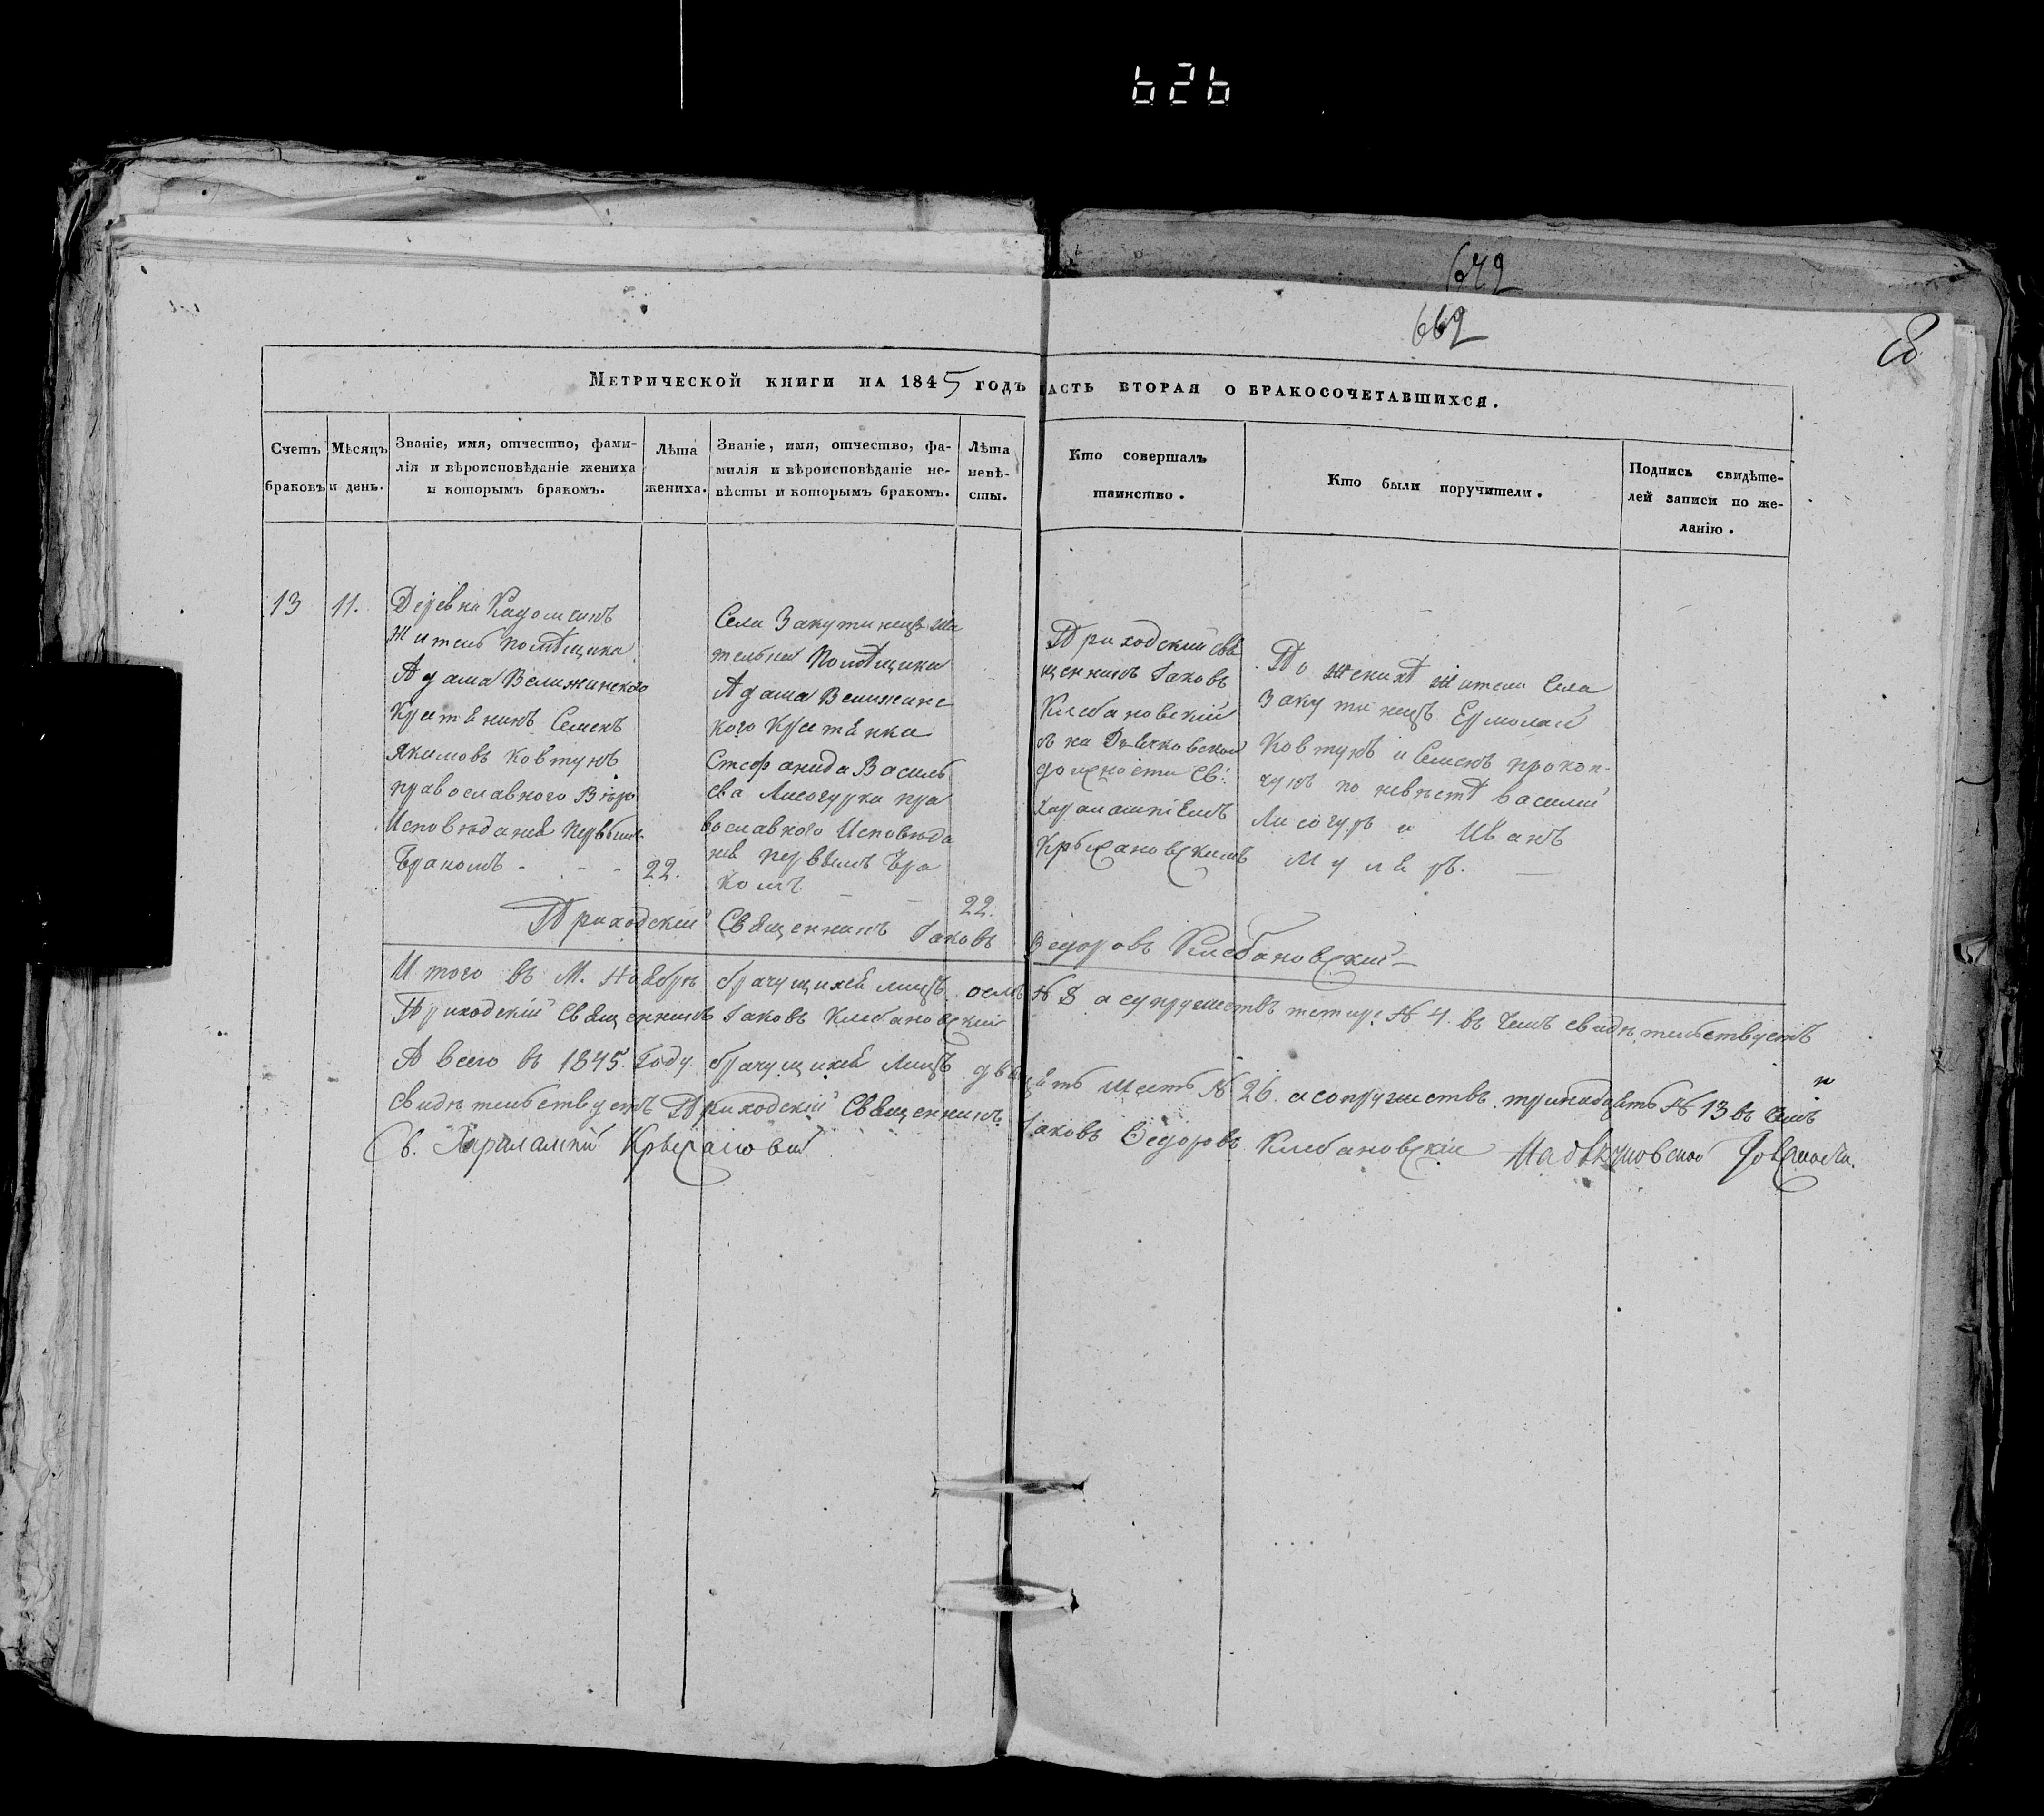 626
672
662
Метрической книги на 1845 годъ часть вторая о бракосочетавшихся.
Счетъ браковъ
Мѣсяцъ и день.
Званіе, имя, отчество, фами-
лія и вѣроисповѣданіе жениха
и которымъ бракомъ.
Лѣта
жениха.
Званіе, имя, отчество, фа-
милія и вѣроисповѣданіе не-
вѣсты и которымъ бракомъ.
Лѣта
невѣ-
сты.
Кто совершалъ
таинство.
Кто были поручители.
Подпись свидѣте-
лей записи по же-
ланію.
13
11.
Деревни
житель помѣщика
Адама Велижинского
Крестянинъ Семенъ
Якимовъ Ковтунъ
православного Вѣро
Исповѣданія первымъ
бракомъ - - -
22.
Села Закутинецъ жи
тельна Помѣщика
Адама Велижинс
кого Крестянка
Стефанида Василь
ева Лисогурка пра
вославного Исповѣда
нія первымъ бра
комъ
22.
Приходскій Свя
щенникъ Іаковъ
Клебановскій
должности Св:
Харалампіемъ
По женихѣ жители Села
Закутинецъ Ермолай
Ковтунъ и Семенъ Прокоп-
чукъ по невѣстѣ Василий
Лисогуръ и Иванъ
Муляръ.
Приходскій Священникъ Іаковъ Ѳедоровъ Клебановскій
Итого въ М. Ноябрѣ брачущихся лицъ осмъ № 8 а супружествъ четыре № 4. въ чемъ свидѣтельствуетъ
Приходскій Священникъ Іаковъ Клебановскій
А всего въ 1845. Году. брачущихся Лицъ двадцять шесть № 26. а сопружествъ тринадцять № 13 въ чемъ
свидѣтельствуетъ Приходскій Священникъ Іаковъ Ѳедоровъ Клебановскій
Св. Харалампій